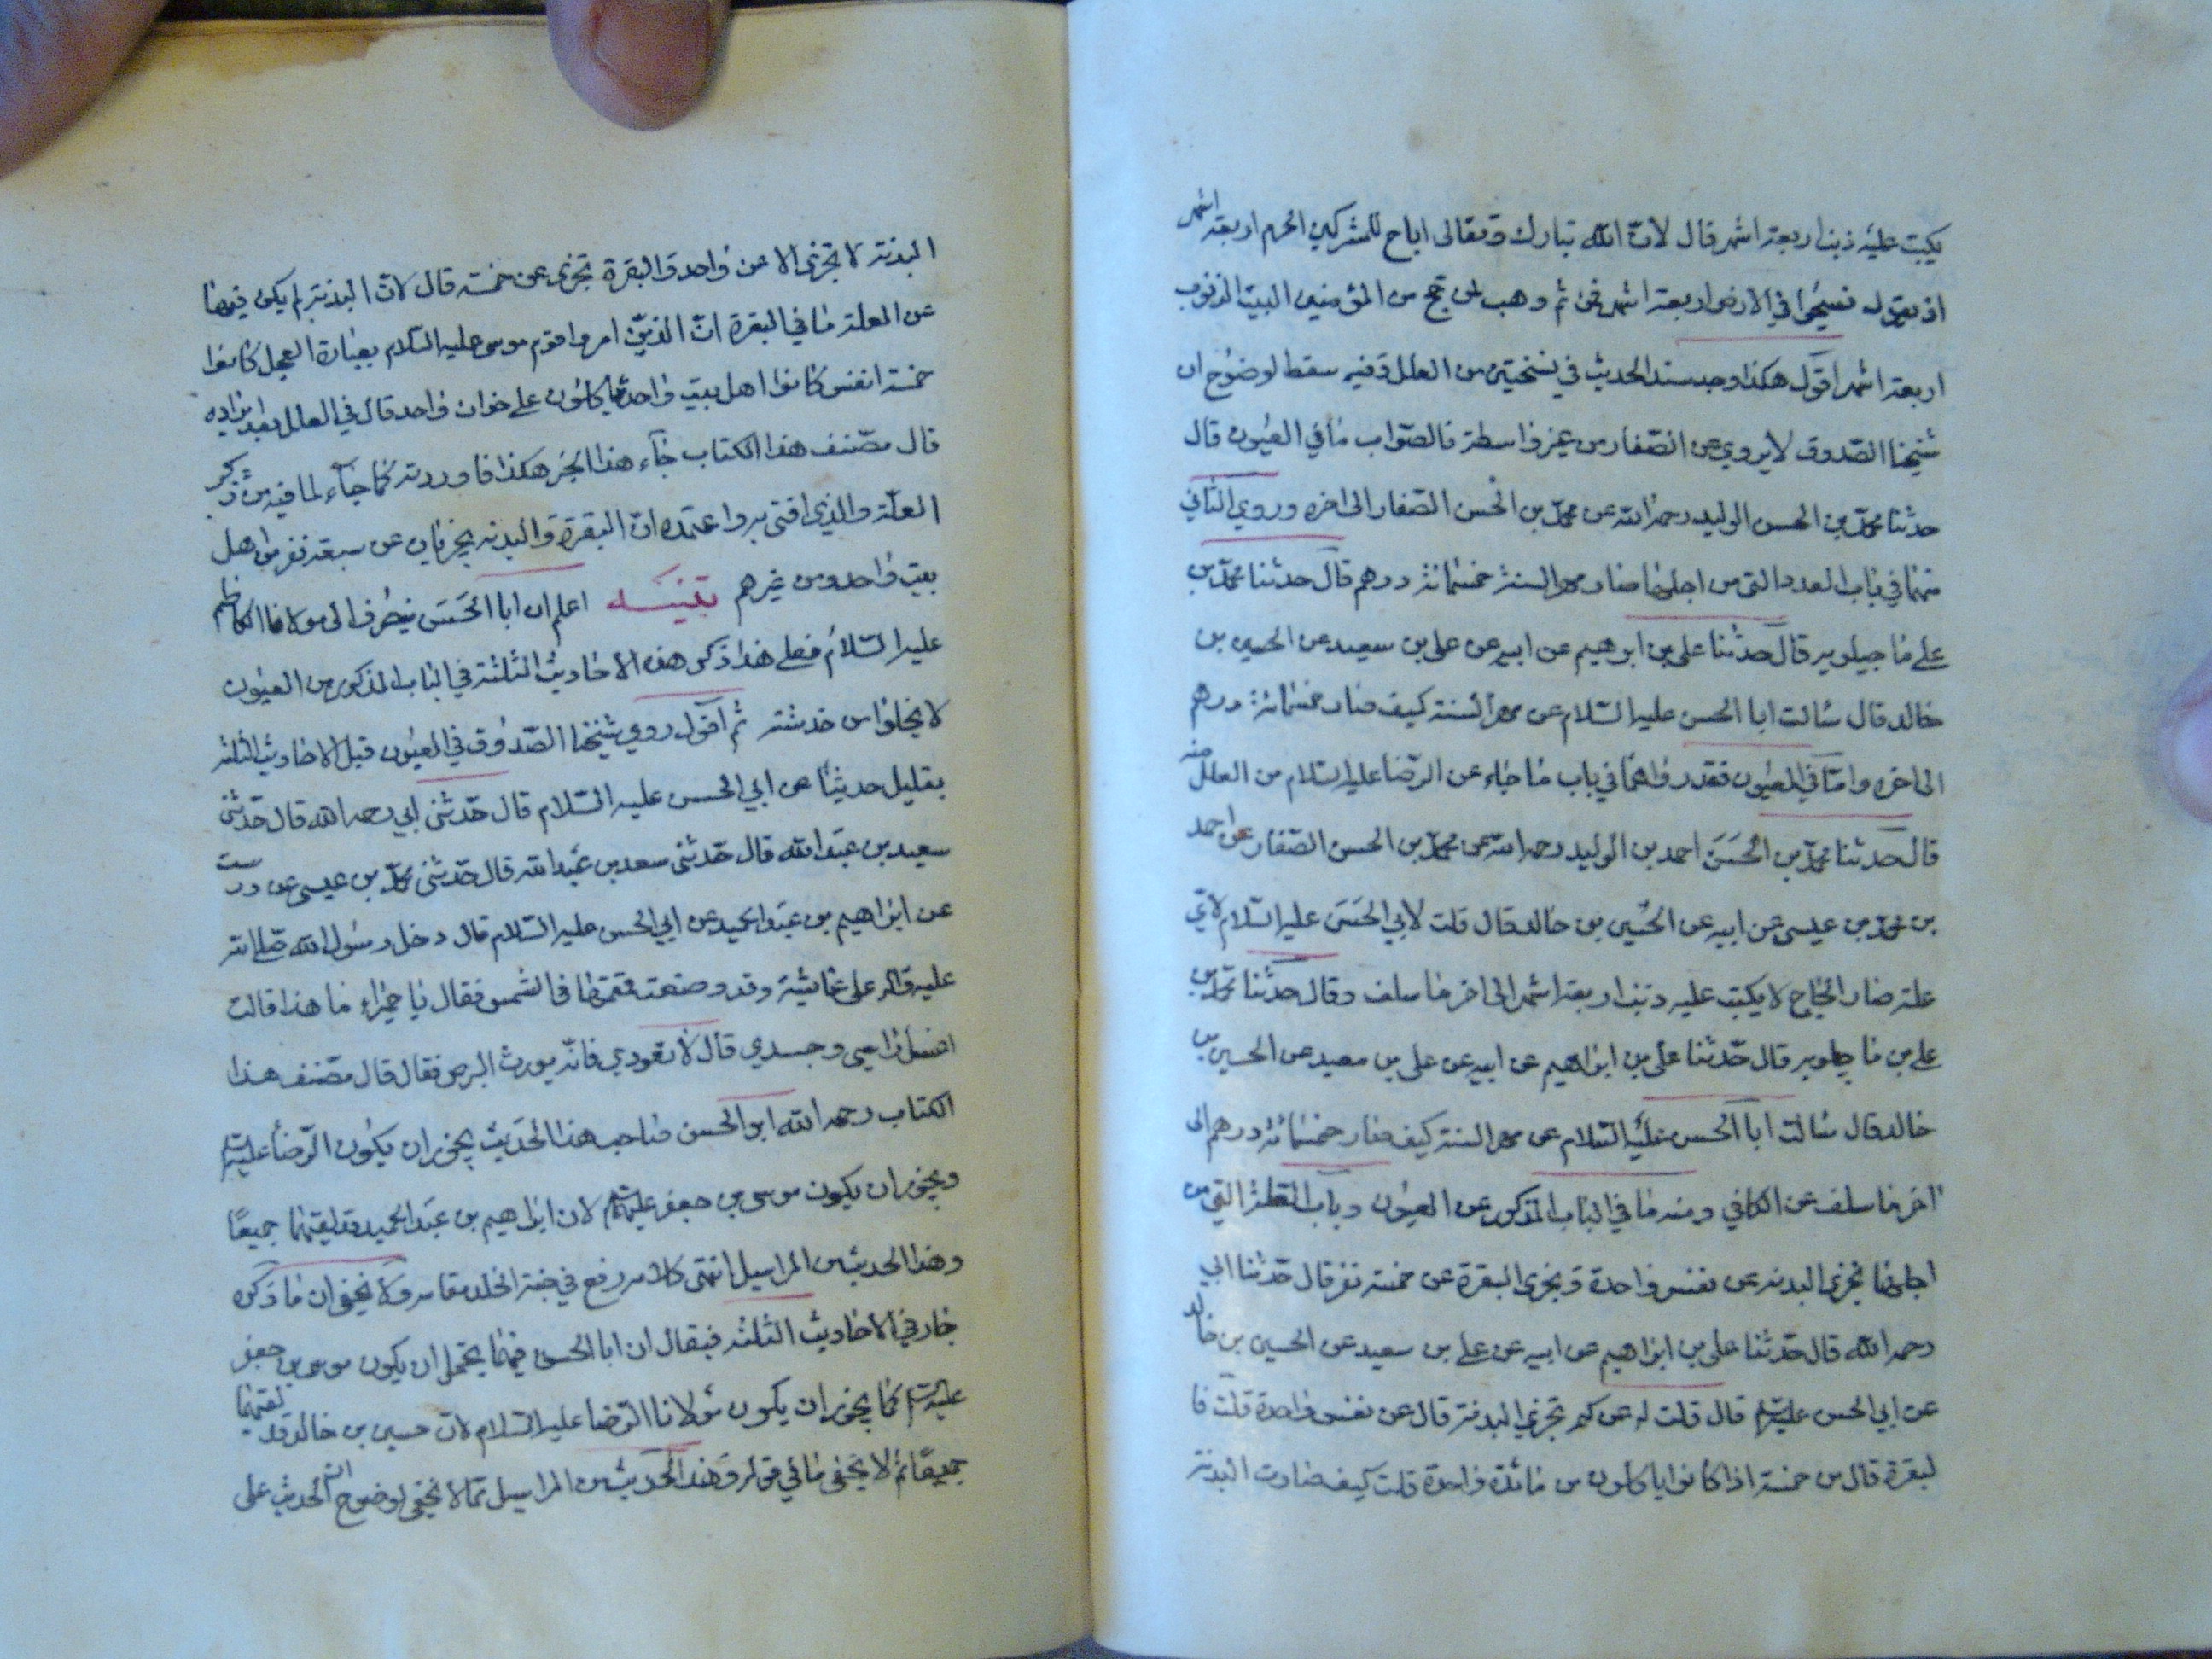 يكتب عليه ذنب اربعة اشهر قال لان الله تبارك وتعالى اباح للمشركين الحرم اربعة اشهر
اذ يقول فسيحوا في الارض اربعة اشهر فمن ثم وهب لمن حج من المؤمنين البيت الذنوب
اربعة اشهر اقول هكذا وجد سند الحديث في نسختين من العلل وفيه سقط لوضوح ان
شيخنا الصدوق لا يروي عن الصفار من غير واسطة فالصواب ما في العيون قال
حدثنا محمد بن الحسن الوليد رحمه الله عن محمد بن الحسن الصفار الى اخره وروي الثاني
منهما في باب العلة التي من اجلها صار مهر السنة خمسمائة درهم قال حدثنا محمد بن
علي ماجيلويه قال حدثنا علي بن ابرهيم عن ابيه عن علي بن سعيد عن الحسين بن
خالد قال سالت ابا الحسن عليه السلام عن مهر السنة كيف صار خمسمائة درهم
الى اخره واما في العيون فقد رواهما في باب ما جاء عن الرضا عليه السلام من العلل منه
قال حدثنا محمد بن الحسن احمد بن الوليد رحمه الله عن محمد بن الحسن الصفار عن احمد
بن محمد بن عيسى عن ابيه عن الحسين بن خالد قال قلت لابي الحسن عليه السلام لاي
علة صار الحاج لا يكتب عليه ذنب اربعة اشهر الى اخر ما سلف وقال حدثنا محمد بن
علي بن ماجيلويه قال حدثنا علي بن ابراهيم عن ابيه عن علي بن معبد عن الحسين بن
خالد قال سالت ابا الحسن عليه السلام عن مهر السنة كيف صار خمسمائة درهم الى
اخر ما سلف عن الكافي ومنه ما في الباب المذكور عن العيون وباب العلة التي من
اجلها تجزي البدنة عن نفس واحدة وتجزي البقرة عن خمسة نفر قال حدثنا ابي
رحمه الله قال حدثنا علي بن ابراهيم عن ابيه عن علي بن سعيد عن الحسين بن خالد
عن ابي الحسن عليه السلام قال قلت له عن كم تجزي البدنة قال عن نفس واحدة قلت فا
لبقرة قال من خمسة اذا كانوا ياكلون من مائدة واحدة قلت كيف صارت البدنة
البدنة لا تجزي الا عن واحد والبقرة تجزي عن خمسة قال لان البدنة لم يكن فيها
من العلة ما في البقرة ان الذين امروا قوم موسى عليه السلام بعبادة العجل كانوا
خمسة انفس كانوا اهل بيت واحد ياكلون على خوان واحد قال في العلل بعد ايراده
قال مصنف هذا الكتاب جاء هذا الخبر هكذا فاوردته كما جاء لما فيه من ذكر
العلة والذي افتى به واعتمده ان البقرة والبدنة يجزيان عن سبعة نفر من اهل
بيت واحد ومن غيرهم تنبيه اعلم ان ابا الحسن ينصرف الى مولانا الكاظم
عليه السلام فعلى هذا ذكر هذه الاحاديث الثلثة في الباب المذكور من العيون
لا يخلوا من خدشة ثم اقول روي شيخنا الصدوق في العيون قبل الاحاديث الثلثة
بقليل حديثا عن ابي الحسن عليه السلام قال حدثني ابي رحمه الله قال حدثني
سعيد بن عبد الله قال حدثني سعد بن عبد الله قال حدثني محمد بن عيسى عن درست
عن ابراهيم بن عبد الحميد عن ابي الحسن عليه السلام قال دخل رسول الله صلى الله
عليه واله على عائشة وقد وضعت قمقمتها في الشمس فقال يا حميراء ما هذا قالت
اغسل راسي وجسدي قال لا تعودي فانه يورث البرص فقال قال مصنف هذا
الكتاب رحمه الله ابو الحسن صاحب هذا الحديث يجوز ان يكون الرضا عليه السلم
ويجوز ان يكون موسى بن جعفر عليه السلم لان ابراهيم بن عبد الحميد قد لقيهما جميعا
وهذا الحديث من المراسيل انتهى كلامه رفع في جنة الخلد مقامه ولا يخفى ان ما ذكره
جار في الاحاديث الثلثة فيقال ان ابا الحسن فيها يحتمل ان يكون موسى بن جعفر
عليه السلم كما يجوز ان يكون مولانا الرضا عليه السلام لان حسين بن خالد قد لقيهما
جميعا ثم لا يخفى ما في قوله وهذا الحديث من المراسيل مما لا يخفى لوضوح ان الحديث على